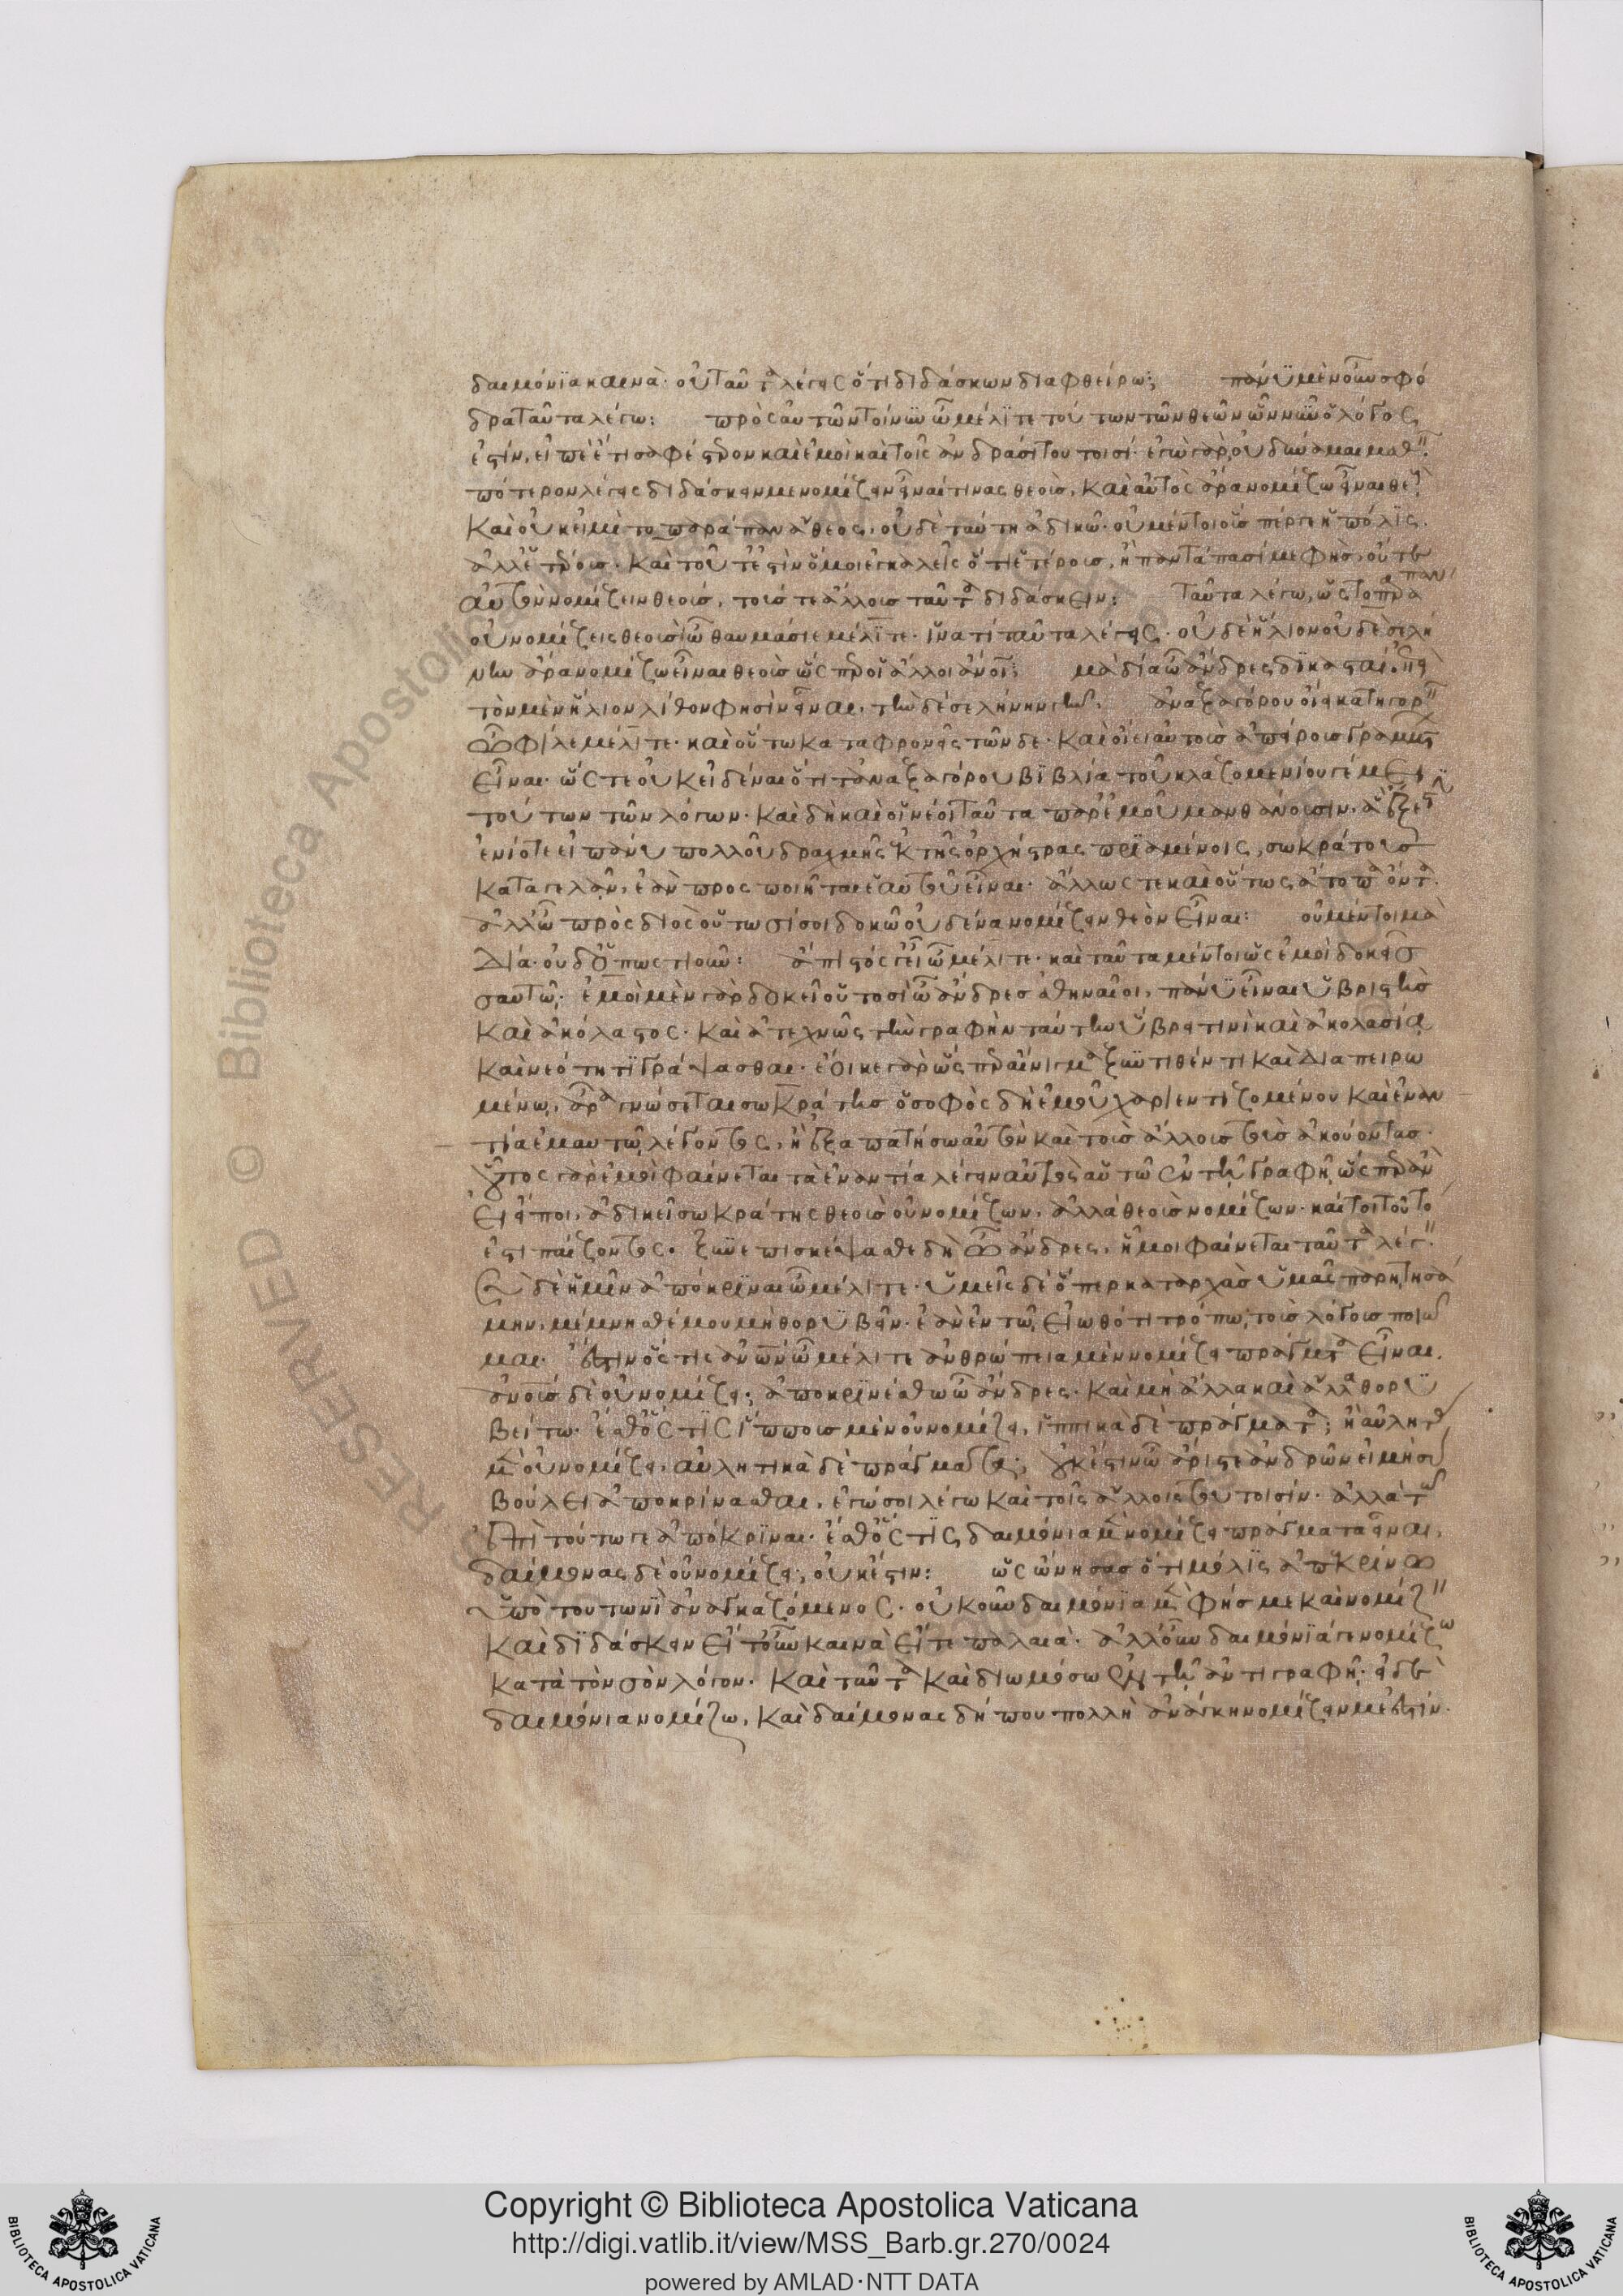 δαιμόνια καινά· οὐ ταῦτα λέγεις ὅτι διδάσκων διαφθείρω; πάνυ μὲν οὖν σφό
δρα ταῦτα λέγω: πρὸς αὐτῶν τοίνυν ὦ μέλιτε τούτων τῶν θεῶν ὧν νῦν ὁ λόγος
ἐστίν, εἰπὲ ἔτι σαφέστερον καὶ ἐμοὶ καὶ τοῖς ἀνδράσι τουτοισί· ἐγὼ γὰρ οὐ δύναμαι μαθεῖν
πότερον λέγεις διδάσκειν με νομίζειν εἶναί τινας θεούς, καὶ αὐτὸς ἄρα νομίζω εἶναι θεούς
καὶ οὐκ εἰμὶ τὸ παράπαν ἄθεος, οὐδὲ ταύτῃ ἀδικῶ· οὐ μέντοι οὕσπέρ γε ἡ πόλις.
ἀλλ' ἑτέρους· καὶ τοῦτ' ἔστιν ὅ μοι ἐγκαλεῖς ὅτι ἑτέρους, ἢ παντάπασί με φῂς οὔτε
αὐτὸν νομίζειν θεούς, τούς τε ἄλλους ταῦτα διδάσκειν: ταῦτα λέγω, ὡς τὸ παράπαν
οὐ νομίζεις θεούς: ὦ θαυμάσιε μέλιτε· ἵνα τί ταῦτα λέγεις· οὐδὲ ἥλιον οὐδὲ σελή
νην ἄρα νομίζω εἶναι θεοὺς ὥσπερ οἱ ἄλλοι ἄνοι; μὰ δία ὦ ἄνδρες δικασταί· ἐπεὶ
τὸν μὲν ἥλιον λίθον φησὶν εἶναι, τὴν δὲ σελήνην γῆν. ἀναξαγόρου οἴει κατηγορεῖν
ὦ φίλε μέλιτε· καὶ οὕτω καταφρονεῖς τῶνδε· καὶ οἴει αὐτοὺς ἀπείρους γραμμάτων
εἶναι· ὥστε οὐκ εἰδέναι ὅτι τἀναξαγόρου βιβλία τοῦ κλαζομενίου γέμει
τούτων τῶν λόγων· καὶ δὴ καὶ οἱ νέοι ταῦτα παρ' ἐμοῦ μανθάνουσιν, ἃ ἔξεστιν
ἐνίοτε εἰ πάνυ πολλοῦ δραχμῆς ἐκ τῆς ὀρχήστρας πριαμένοις, σωκράτους
καταγελᾶν, ἐὰν προσποιῆται ἑαυτοῦ εἶναι· ἄλλως τε καὶ οὕτως ἄτοπα ὄντα.
ἀλλ' ὦ πρὸς διὸς οὑτωσί σοι δοκῶ οὐδένα νομίζειν θεὸν εἶναι: οὐ μέντοι μὰ
Δία· οὐδ' ὁπωστιοῦν: ἄπιστός γ' εἶ ὦ μέλιτε· καὶ ταῦτα μέντοι ὡς ἐμοὶ δοκεῖς
σαυτῷ· ἐμοὶ μὲν γὰρ δοκεῖ οὑτοσὶ ὦ ἄνδρες ἀθηναῖοι, πάνυ εἶναι ὑβριστὴς
καὶ ἀκόλαστος· καὶ ἀτεχνῶς τὴν γραφὴν ταύτην ὕβρει τινὶ καὶ ἀκολασίᾳ
καὶ νεότητι γράψασθαι· ἔοικε γὰρ ὥσπερ αἴνιγμα ξυντιθέντι καὶ Διαπειρω
μένῳ, ἆρα γνώσεται σωκράτης ὁ σοφὸς δὴ ἐμοῦ χαριεντιζομένου καὶ ἐναν
τία ἐμαυτῷ λέγοντος, ἢ ἐξαπατήσω αὐτὸν καὶ τοὺς ἄλλους τοὺς ἀκούοντας·
οὗτος γὰρ ἐμοὶ φαίνεται τὰ ἐναντία λέγειν αὐτὸς αὑτῷ ἐν τῇ γραφῇ, ὥσπερ ἂν
εἰ εἴποι, ἀδικεῖ σωκράτης θεοὺς οὐ νομίζων, ἀλλὰ θεοὺς νομίζων· καίτοι τοῦτό
ἐστι παίζοντος. ξυνεπισκέψασθε δὴ ὦ ἄνδρες, ᾗ μοι φαίνεται ταῦτα λέγειν
σὺ δὲ ἡμῖν ἀπόκριναι ὦ μέλιτε· ὑμεῖς δὲ ὅπερ καταρχὰς ὑμᾶς παρῃτησά
μην, μέμνησθέ μου μὴ θορυβεῖν· ἐὰν ἐν τῷ εἰωθότι τρόπῳ τοὺς λόγους ποιῶ
μαι. ἔστιν ὅστις ἀνων ὦ μέλιτε ἀνθρώπεια μὲν νομίζει πράγματα εἶναι,
ἀνους δὲ οὐ νομίζει; ἀποκρινέσθω ὦ ἄνδρες· καὶ μὴ ἄλλα καὶ ἄλλα θορυ
βείτω· ἔσθ' ὅστις ἵππους μὲν οὐ νομίζει, ἱππικὰ δὲ πράγματα; ἢ αὐλητὰς
μὲν οὐ νομίζει, αὐλητικὰ δὲ πράγματα; οὐκ ἔστιν ὦ ἄριστε ἀνδρῶν· εἰ μὴ σὺ
βούλει ἀποκρίνασθαι, ἐγώ σοι λέγω καὶ τοῖς ἄλλοις τουτοισίν· ἀλλὰ τὸ
ἐπὶ τούτῳ γε ἀπόκριναι· ἔσθ' ὅστις δαιμόνια μὲν νομίζει πράγματα εἶναι,
δαίμονας δὲ οὐ νομίζει; οὐκ ἔστιν: ὡς ὤνησας ὅτι μόλις ἀπεκρίνω
ὑπὸ τουτωνὶ ἀναγκαζόμενος· οὐκοῦν δαιμόνια μὲν φῄς με καὶ νομίζειν
καὶ διδάσκειν εἴτ' οὖν καινὰ εἴτε παλαιά· ἀλλ' οὖν δαιμόνιά γε νομίζω
κατὰ τὸν σὸν λόγον· καὶ ταῦτα καὶ διωμόσω ἐν τῇ ἀντιγραφῇ· εἰ δὲ
δαιμόνια νομίζω, καὶ δαίμονας δήπου πολλὴ ἀνάγκη νομίζειν μέ ἐστιν.
Copyright © Biblioteca Apostolica Vaticana
http://digi.vatlib.it/view/MSS_Barb.gr.270/0024
powered by AMLAD·NTT DATA